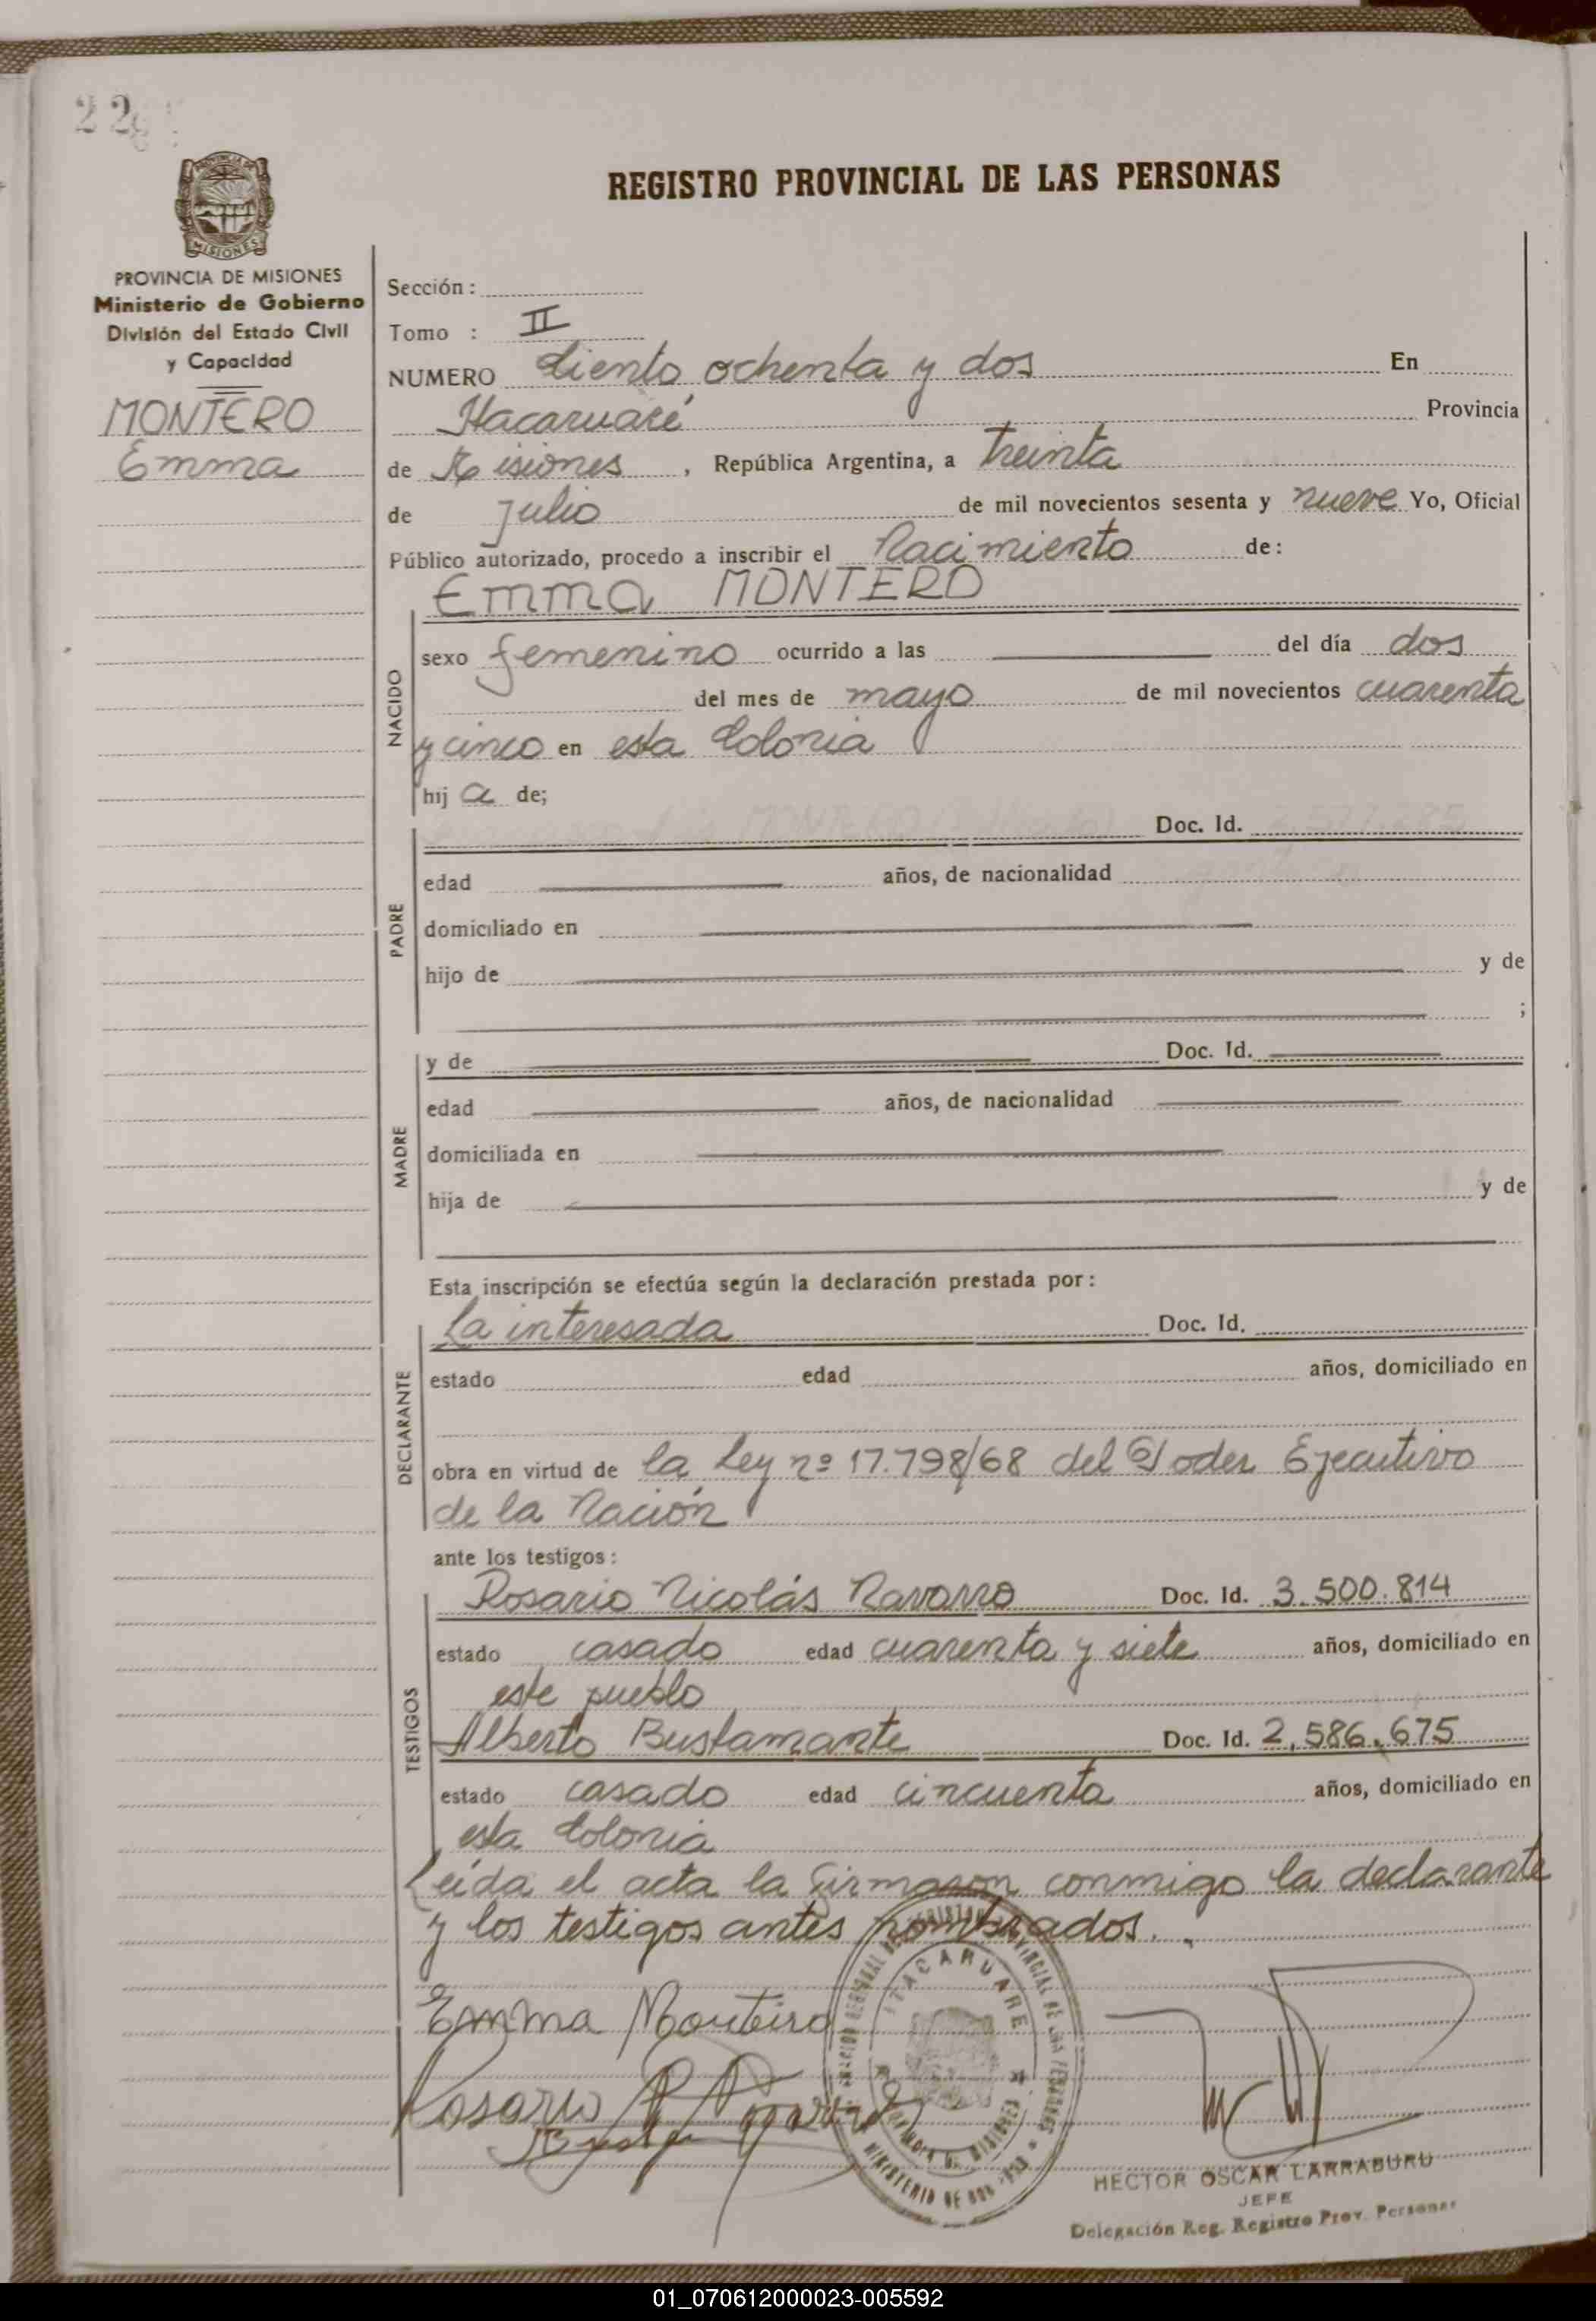 REGISTRO PROVINCIAL DE LAS PERSONAS
MISIONES
PROVINCIA DE MISIONES
Ministerio de Gobierno
División del Estado Civil
y Capacidad
MONTERO
Emma
Sección :
Tomo : II
NUMERO Ciento ochenta y dos En
Itacaruaré Provincia
de Misiones , República Argentina, a treinta
de julio de mil novecientos sesenta y nueve Yo, Oficial
Público autorizado, procedo a inscribir el Nacimiento de:
Emma MONTERO
NACIDO
sexo femenino ocurrido a las del día dos
del mes de mayo de mil novecientos cuarenta
y cinco en esta Colonia
hij a de;
PADRE
Doc. Id.
edad años, de nacionalidad
domiciliado en
hijo de y de
;
MADRE
y de Doc. Id.
edad años, de nacionalidad
domiciliada en
hija de y de
Esta inscripción se efectúa según la declaración prestada por :
DECLARANTE
La interesada Doc. Id.
estado edad años, domiciliado en
obra en virtud de la Ley nº 17.798/68 del Poder Ejecutivo
de la Nación
ante los testigos :
TESTIGOS
Rosario Nicolás Navarro Doc. Id. 3.500.814
estado casado edad cuarenta y siete años, domiciliado en
este pueblo
Alberto Bustamante Doc. Id. 2,586,675
estado casado edad cincuenta años, domiciliado en
esta Colonia
Leída el acta la firmaron conmigo la declarante
y los testigos antes nombrados.
Emma Monteiro
Rosario
ITACARUARE
HECTOR OSCAR LARRABURU
JEFE
Delegación Reg. Registro Prov. Personas
01_070612000023-005592